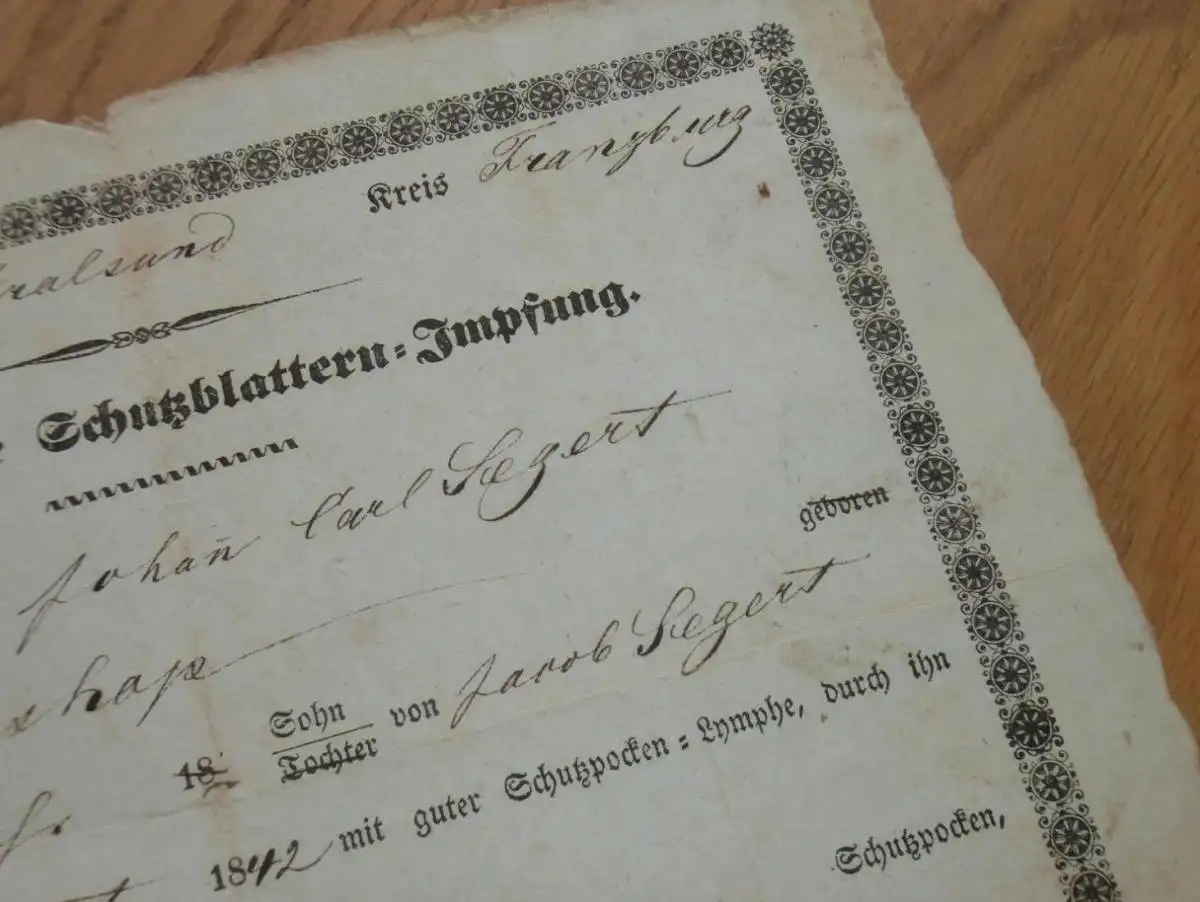 Kreis Franzburg
ralsund
Schutzblattern=Impfung.
Johan̄ Carl Segert
geboren
18 Sohn
Tochter von Jacob Segert
1842 mit guter Schutzpocken=Lymphe, durch ihn
Schutzpocken,